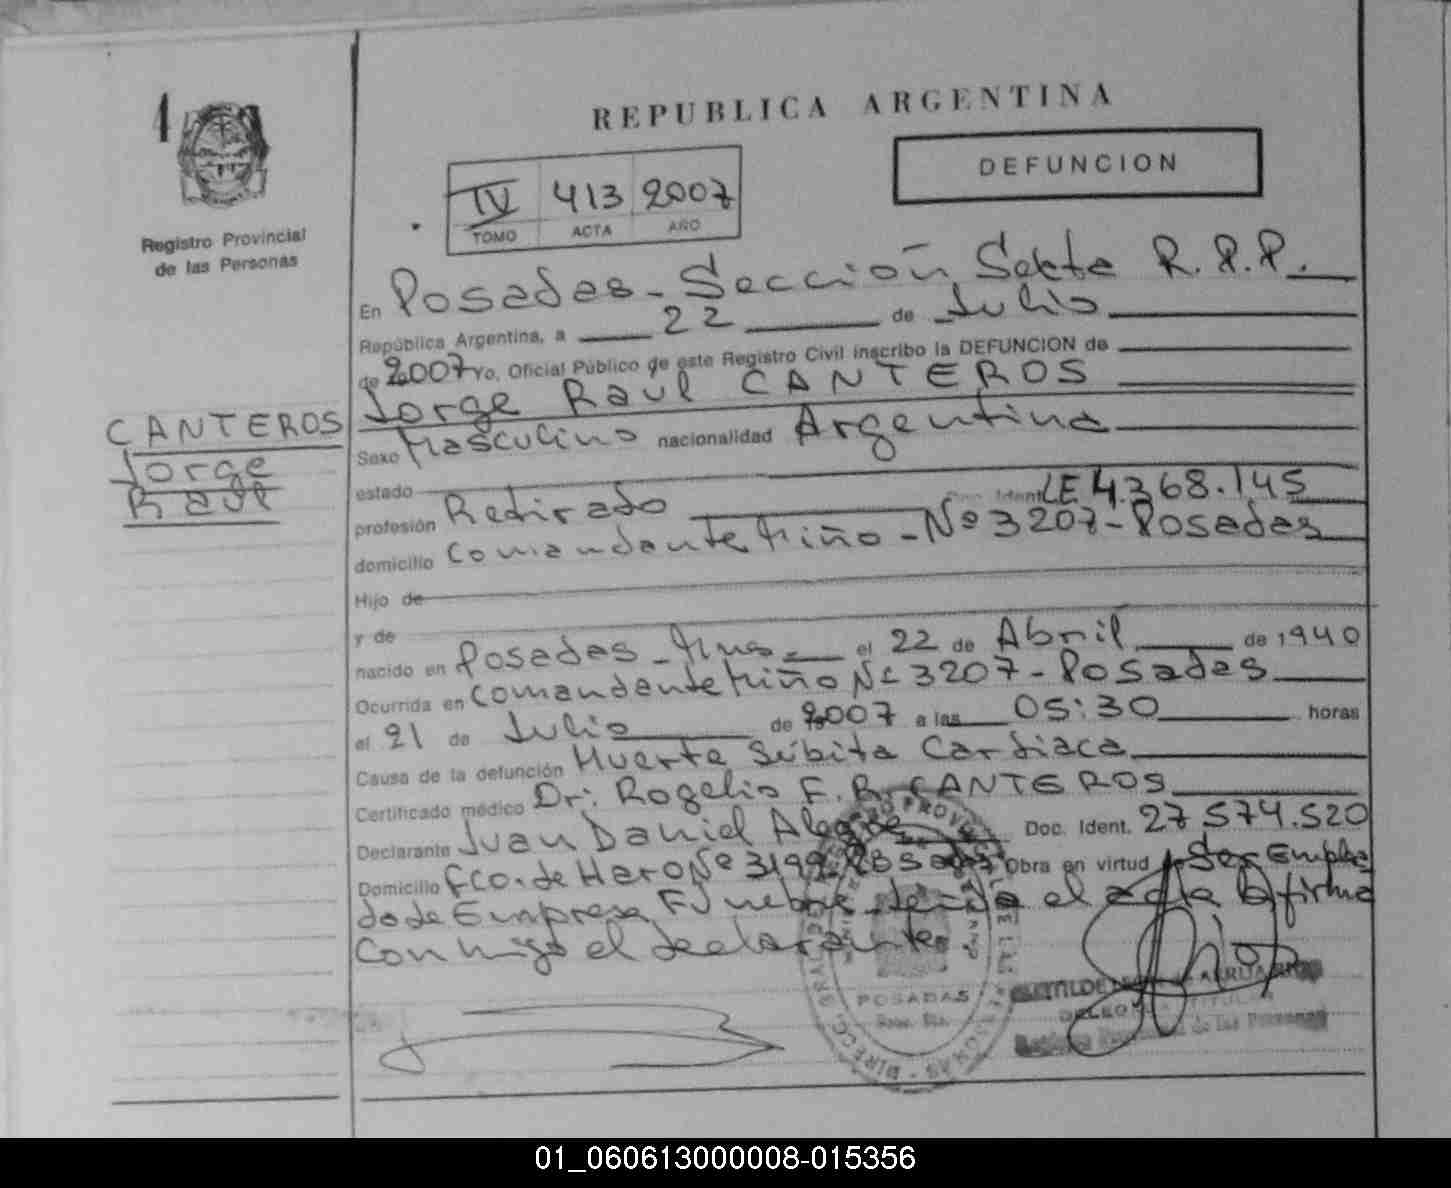 1
REPUBLICA ARGENTINA
DEFUNCION
IV 413 2007
TOMO ACTA AÑO
Registro Provincial
de las Personas
En Posadas - Sección Sexta R.P.P.
República Argentina, a 22 de Julio
de 2007 Yo, Oficial Público de este Registro Civil inscribo la DEFUNCION de
Jorge Raúl CANTEROS
CANTEROS
Jorge
Raúl
Sexo Masculino nacionalidad Argentina
estado
profesión Retirado Doc. Ident. LE 4.368.145
domicilio Comandante Miño - Nº 3207 - Posadas
Hijo de
y de
nacido en Posadas - Mnes - el 22 de Abril de 1940
Ocurrida en Comandante Miño Nº 3207 - Posadas
el 21 de Julio de 2007 a las 05:30 horas
Causa de la defunción Muerte Súbita Cardiaca
Certificado médico Dr: Rogelio F. R. CANTEROS
Declarante Juan Daniel Alegre Doc. Ident. 27.574.520
Domicilio Fco. de Haro Nº 3199 Posadas Obra en virtud de Ser Emplea
do de Empresa Funebre. Leída el acta la firma
conmigo el declarante.
POSADAS
de las Personas
01_060613000008-015356